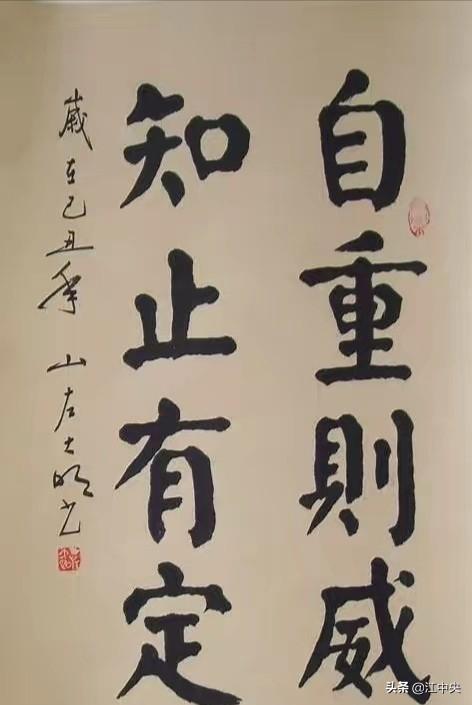 自重則威
知止有定
歲在己丑年 山左大明书
头条 @江中央